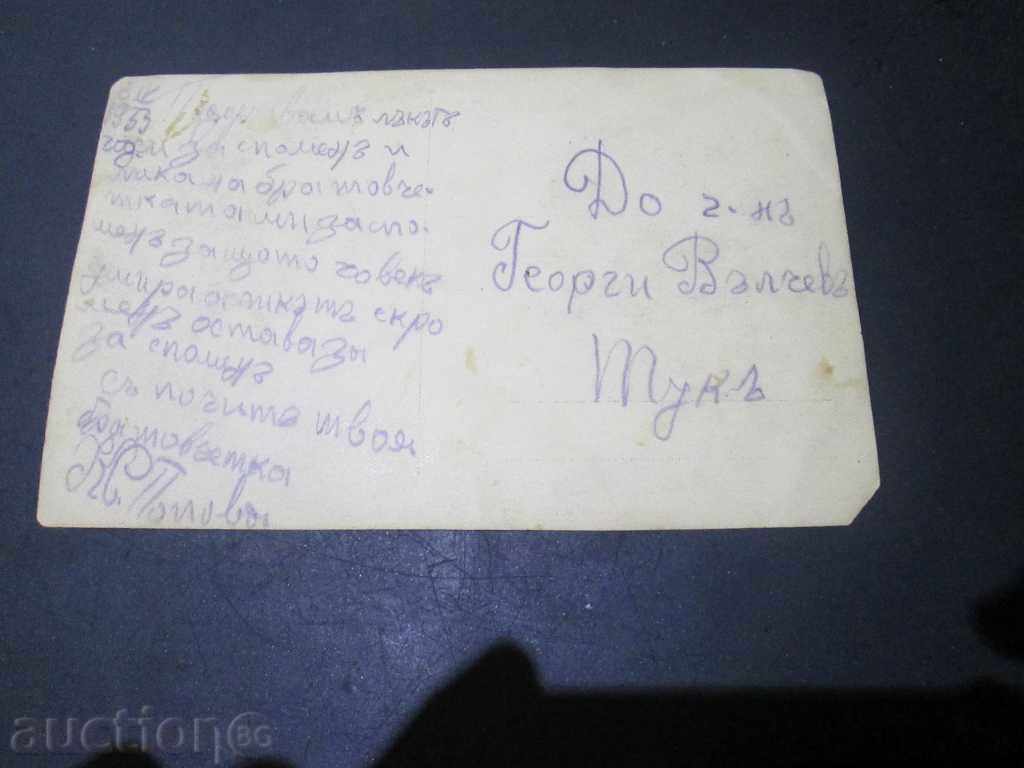 1953 Подарявамъ ликътъ
за споменъ и
на братовче-
тката ми за спо-
менъ защото човекъ
умира а ликътъ скро
менъ остава
за споменъ
съ почитъ твоя
братовчетка
К. Попова
До г-нъ
Георги Вълчевъ
Тукъ
auction BG